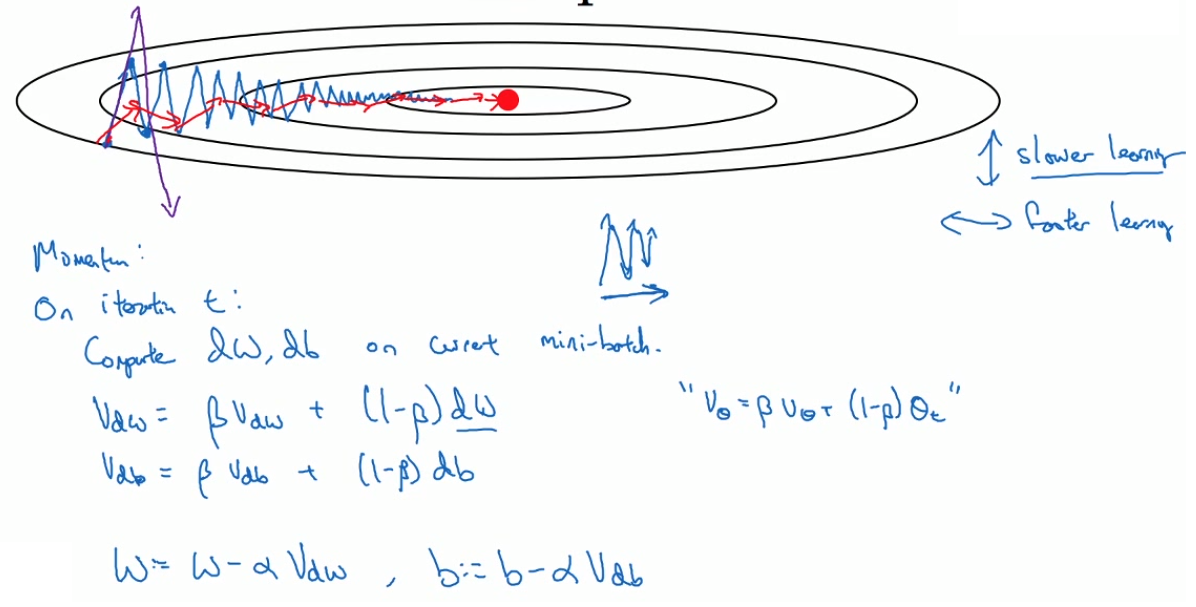 ↕ slower learning
↔ faster learning
Momentum:
On iteration t:
Compute dW, db on current mini-batch.
Vdw = β Vdw + (1-β) dW
"Vθ = β Vθ + (1-β) θt"
Vdb = β Vdb + (1-β) db
W := W - α Vdw , b := b - α Vdb